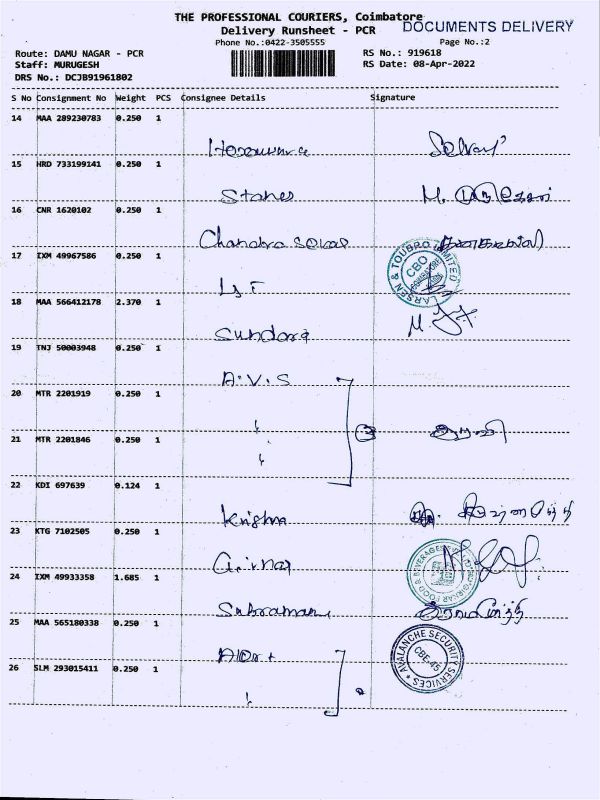 THE PROFESSIONAL COURIERS, Coimbatore
DOCUMENTS DELIVERY
Delivery Runsheet - PCR
Phone No.:0422-3505555
Page No.:2
Route: DAMU NAGAR - PCR
RS No.: 919618
Staff: MURUGESH
RS Date: 08-Apr-2022
DRS No.: DCJB91961802
S No Consignment No Weight PCS Consignee Details Signature
14 MAA 289230783 0.250 1
15 HRD 733199141 0.250 1
Stanes M.
16 CNR 1620102 0.250 1
Chandra
17 IXM 49967586 0.250 1
LARSEN & TOUBRO LIMITED
CBO
18 MAA 566412178 2.370 1
19 TNJ 50003948 0.250 1
A.V.S
20 MTR 2201919 0.250 1
21 MTR 2201846 0.250 1
22 KDI 697639 0.124 1
Krishna
23 KTG 7102505 0.250 1
24 IXM 49933358 1.685 1
25 MAA 565180338 0.250 1
AVALANCHE SECURITY SERVICES
CBE-45
26 SLM 293015411 0.250 1